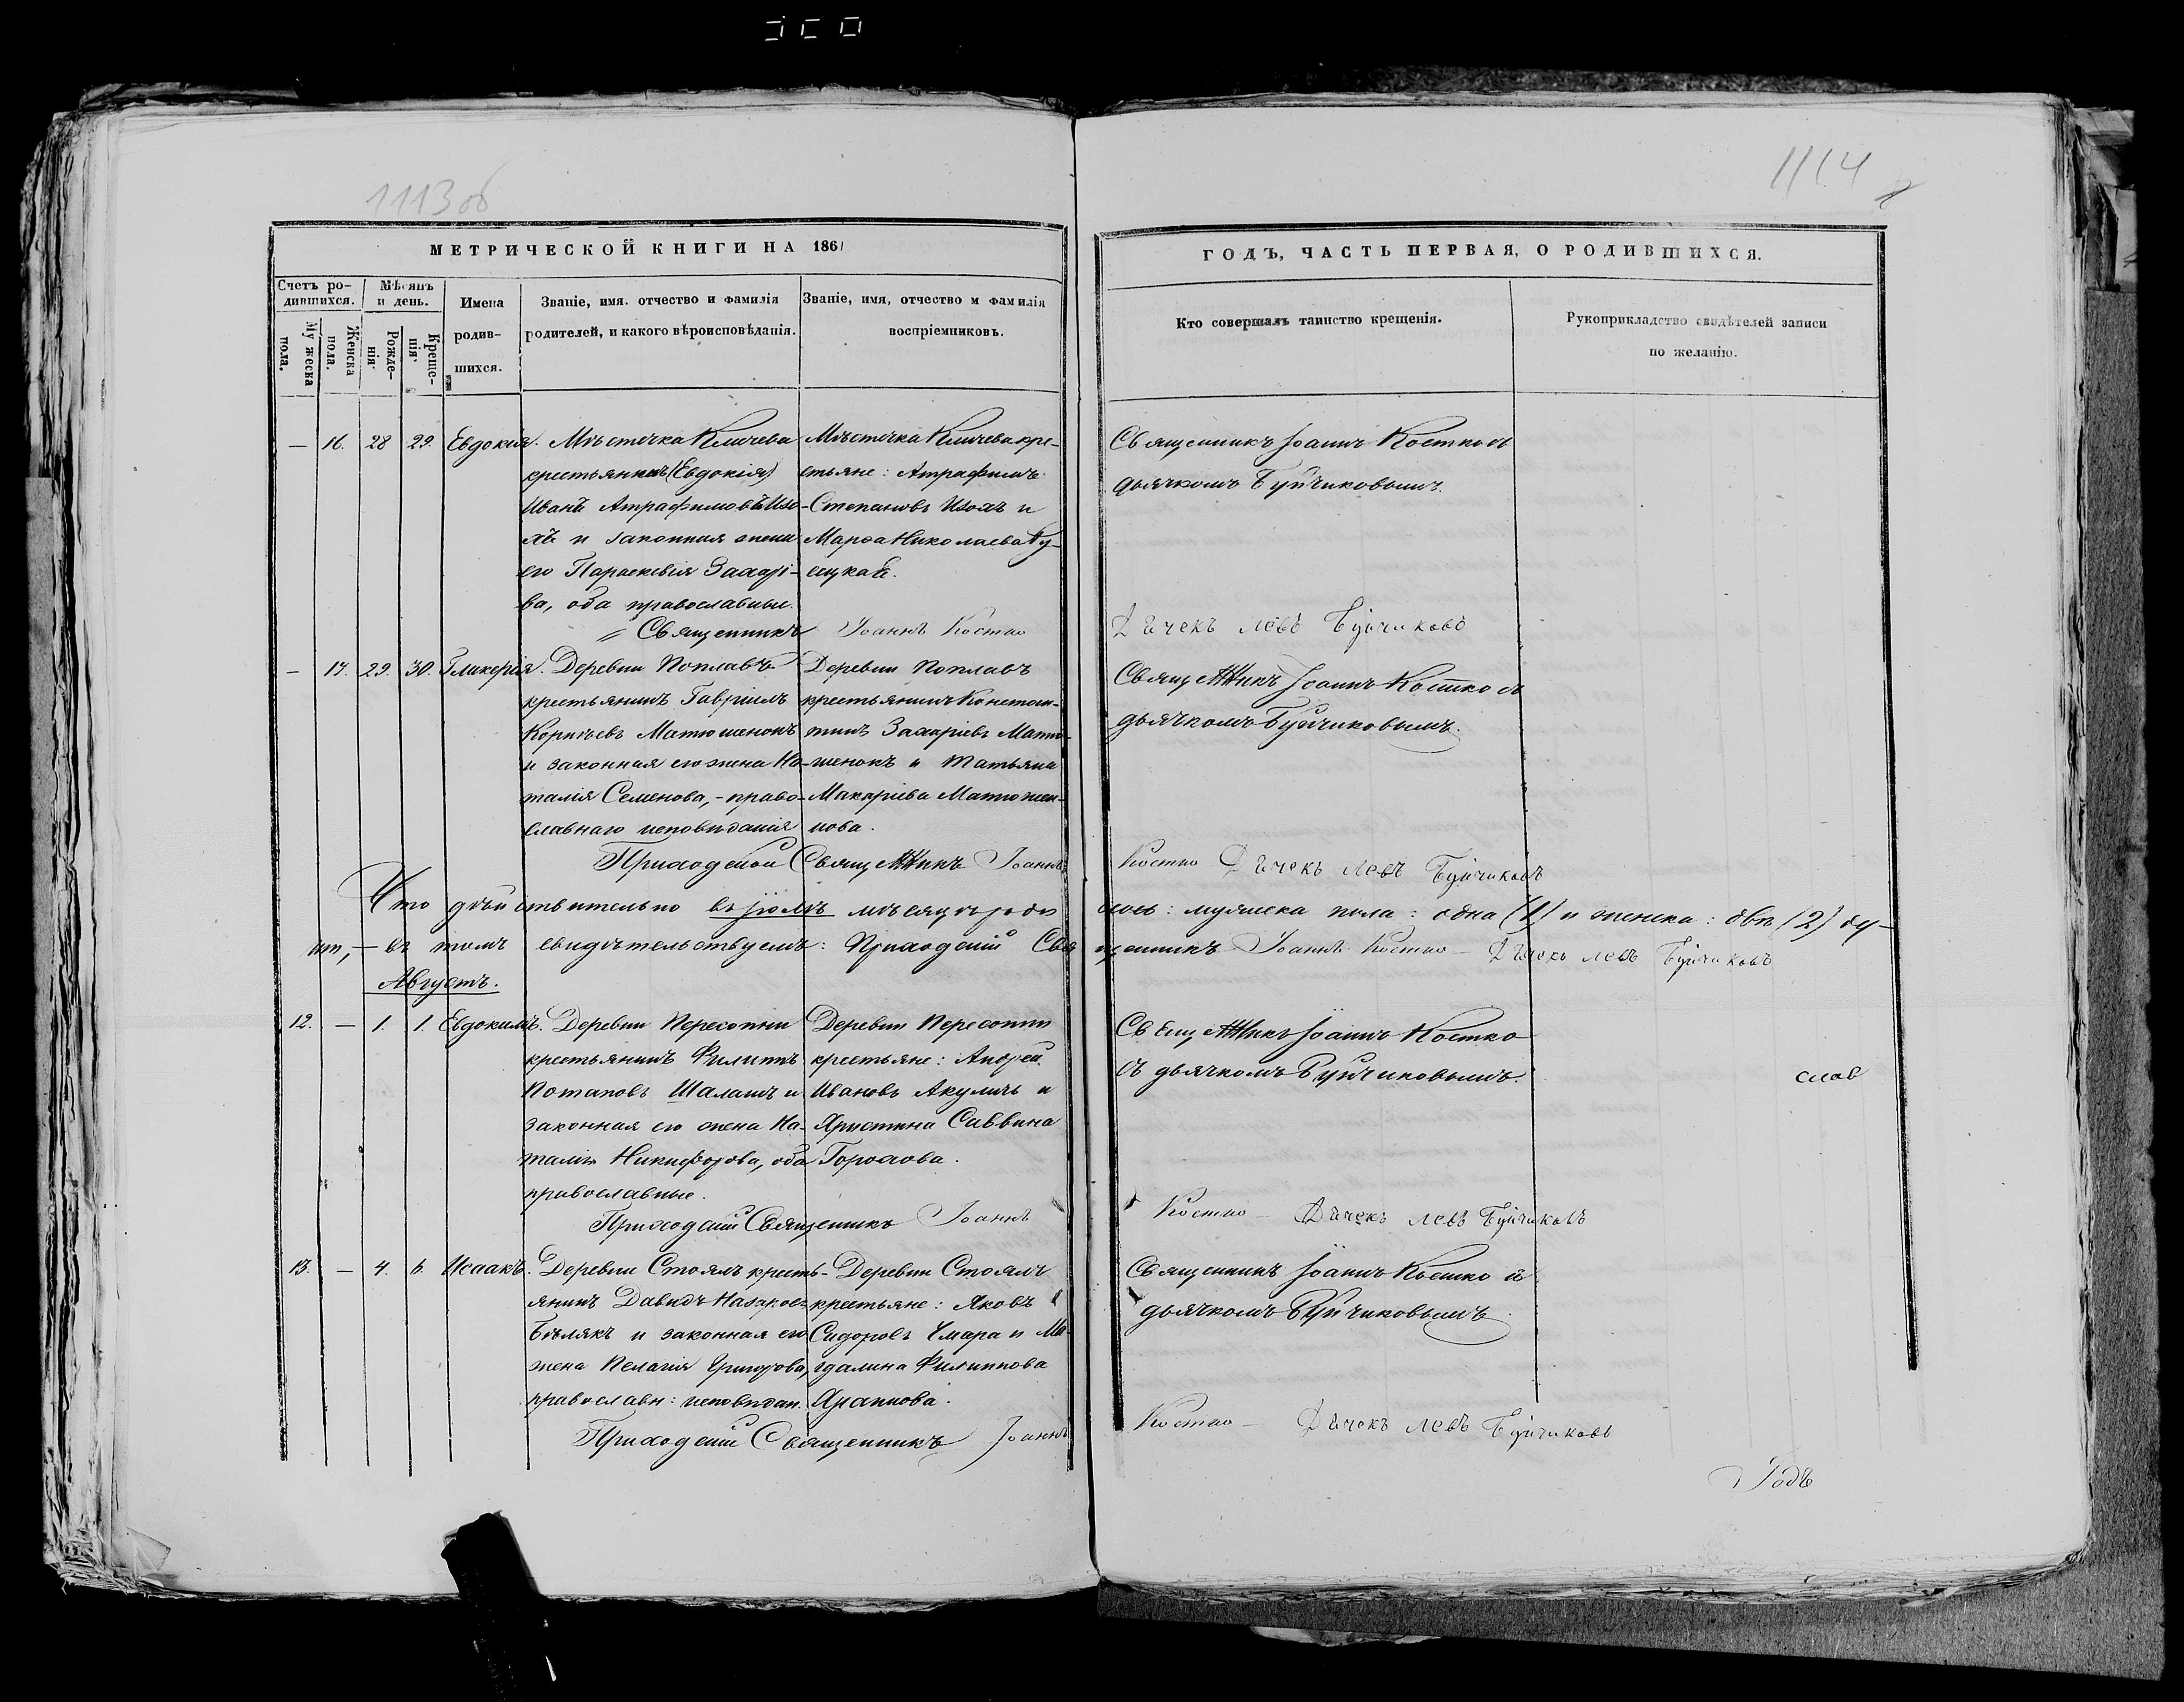 1113 об
1114
МЕТРИЧЕСКОЙ КНИГИ НА 1861
ГОДЪ, ЧАСТЬ ПЕРВАЯ, О РОДИВШИХСЯ.
Счетъ ро-
дившихся.
Мужеска
пола.
Женска
пола.
Мѣсяцъ
и день.
Рожде-
нія
Креще-
нія
Имена
родив-
шихся.
Званіе, имя. отчество и фамилія
родителей, и какого вѣроисповѣданія.
Званіе, имя, отчество и фамилія
воспріемниковъ.
Кто совершалъ таинство крещенія.
Рукоприкладство свидѣтелей записи
по желанію.
— 16. 28 29. Евдокія.
Мѣстечка Кличева
крестьянинъ (Евдокія)
Иванъ Атрафимовъ Изо-
хъ и законная жена
его Параскевія Захарі-
ва, оба православные.
Мѣстечка Кличева кре-
стьяне: Атрафимъ
Степановъ Изохъ и
Марѳа Николаева
Священникъ Іоаннъ Костко съ
дьячкомъ Буйчиковымъ.
Священникъ Іоаннъ Костко
Дьячекъ Левъ Буйчиковъ
— 17. 29. 30. Гликерія.
Деревни Поплавъ
крестьянинъ Гавріилъ
Корнѣевъ Матюшенокъ
и законная его жена На-
талія Семенова, - право-
славнаго исповѣданія
Деревни Поплавъ
крестьянинъ Констан-
тинъ Захаріевъ Матю-
шенокъ и Татьяна
Макаріева Матюшен-
кова.
Священникъ Іоаннъ Костко съ
дьячкомъ Буйчиковымъ.
Приходскій Священникъ Іоаннъ Костко Дьячекъ Левъ Буйчиковъ
Что дѣйствительно въ Іюлѣ мѣсяцѣ роди лось: мужеска пола: одна (1) и женска: двѣ (2) ду-
ши, — въ томъ свидѣтельствуемъ: Приходскій Священникъ Іоаннъ Костко — Дьячекъ Левъ Буйчиковъ
Августъ.
12. — 1. 1. Евдокимъ.
Деревни Пересопни
крестьянинъ Филиппъ
Потаповъ Шаламъ и
законная его жена На-
талія Никифорова, оба
православные.
Деревни Пересопни
крестьяне: Андрей
Ивановъ Акуличъ и
Христина Саввина
Горохова.
Священникъ Іоаннъ Костко
съ дьячкомъ Буйчиковымъ.
слов
Приходскій Священникъ Іоаннъ Костко — Дьячекъ Левъ Буйчиковъ
13. — 4. 6. Исаакъ.
Деревни Стоялъ кресть-
янинъ Давидъ Назаровъ
Бѣлякъ и законная его
жена Пелагія Григорова,
православн: исповѣдан.
Деревни Стоялъ
крестьяне: Яковъ
Сидоровъ Чмара и Ма-
гдалина Филиппова
Храппова.
Священникъ Іоаннъ Костко съ
дьячкомъ Буйчиковымъ.
Приходскій Священникъ Іоаннъ Костко — Дьячекъ Левъ Буйчиковъ
Годъ